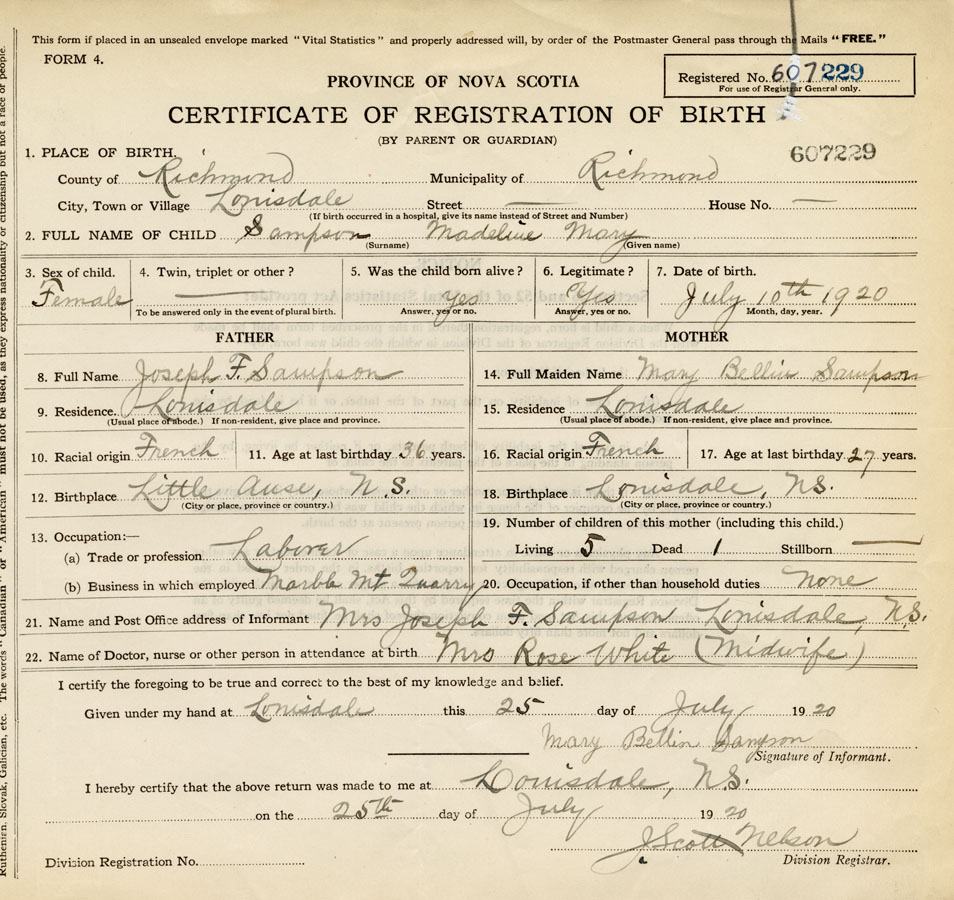 This form if placed in an unsealed envelope marked "Vital Statistics" and properly addressed will, by order of the Postmaster General pass through the Mails "FREE."
FORM 4.
Registered No. 607229
For use of Registrar General only.
PROVINCE OF NOVA SCOTIA
CERTIFICATE OF REGISTRATION OF BIRTH
(BY PARENT OR GUARDIAN)
607229
1. PLACE OF BIRTH.
County of Richmond Municipality of Richmond
City, Town or Village Lonisdale Street — House No. —
(If birth occurred in a hospital, give its name instead of Street and Number)
2. FULL NAME OF CHILD Sampson Madeline Mary
(Surname) (Given name)
3. Sex of child. 4. Twin, triplet or other? 5. Was the child born alive? 6. Legitimate? 7. Date of birth.
Female — Yes Yes July 10th 1920
To be answered only in the event of plural birth. Answer, yes or no. Answer, yes or no. Month, day, year.
FATHER MOTHER
8. Full Name Joseph F. Sampson 14. Full Maiden Name Mary Bellin Sampson
9. Residence. Lonisdale 15. Residence Lonisdale
(Usual place of abode.) If non-resident, give place and province. (Usual place of abode.) If non-resident, give place and province.
10. Racial origin French 11. Age at last birthday 36 years. 16. Racial origin French 17. Age at last birthday 27 years.
12. Birthplace Little Anse, N.S. 18. Birthplace Lonisdale, NS.
(City or place, province or country.) (City or place, province or country.)
13. Occupation:— 19. Number of children of this mother (including this child.)
(a) Trade or profession Laborer Living 5 Dead 1 Stillborn —
(b) Business in which employed Marble Mt Quarry 20. Occupation, if other than household duties None
21. Name and Post Office address of Informant Mrs Joseph F. Sampson Lonisdale, N.S.
22. Name of Doctor, nurse or other person in attendance at birth Mrs Rose White (Midwife)
I certify the foregoing to be true and correct to the best of my knowledge and belief.
Given under my hand at Lonisdale this 25 day of July 1920
Mary Bellin Sampson
Signature of Informant.
I hereby certify that the above return was made to me at Louisdale, N.S.
on the 25th day of July 1920
J Scott Nelson
Division Registration No. Division Registrar.
Ruthenian, Slovak, Galician, etc. The words "Canadian" or "American" must not be used, as they express nationality or citizenship but not a race or people.